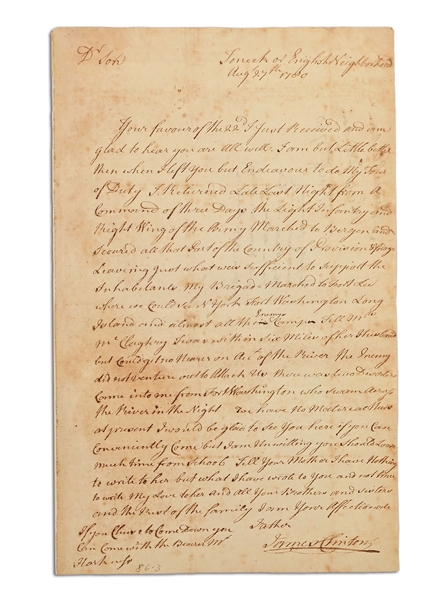 Dr Son
Teneck or English Neighborhood
Aug 27th 1780
Your favour of the 22d I Just Received and am
glad to hear you are All well. I am but Little better
then when I left You but Endeavour to do My Tour
of Duty I Returned Late Last Night from A
Command of three Days the Light Infantry and
Right Wing of the Army Marched to Bergen and
Secured all that Part of the Country of Provision & forage
Leaving Just what was sufficient to support the
Inhabetants My Brigade Marched to Fort Lee
where we Could see N York Fort Washington Long
Island and almost all the Enemys Camps Tell Mrs
Mc Claghry I was within Six Miles of her Husband
but Could git no Nearer on Acct of the River the Enemy
did not venture out to Attack Us there was two Deserters
Came into me from Fort Washington who swam Across
the River in the Night we have No News
at present I would be glad to See You here if you Can
Conveniently Come but I am Unwilling you Should Loose
much time from School Tell Your Mother I have Nothing
to write to her but what I have wrote to You and not
to write My Love to her and All Your Brothers and Sisters
and the Rest of the family I am Your Affectionate
Father
James Clinton
If you Chuse to Come Down you
Can Come with the Bearer Mr
86-3